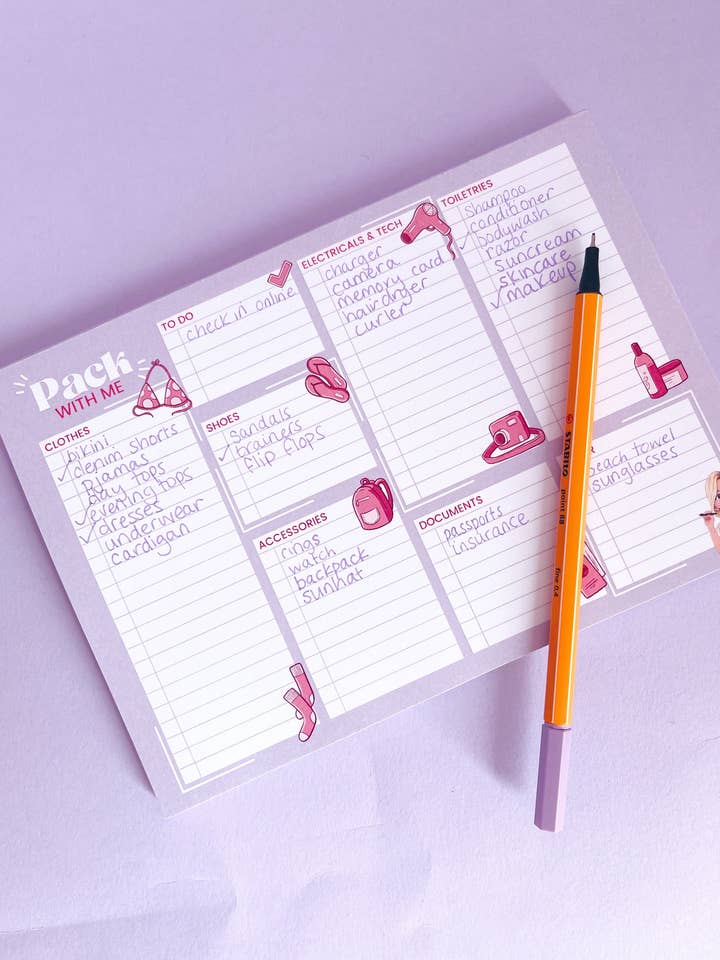 Pack
WITH ME
CLOTHES
bikini
denim shorts
Pyjamas
day tops
evening tops
dresses
underwear
cardigan
TO DO
check in online
SHOES
sandals
trainers
flip flops
ACCESSORIES
rings
watch
backpack
sunhat
ELECTRICALS & TECH
charger
camera
memory card
hairdryer
curler
DOCUMENTS
passports
insurance
TOILETRIES
shampoo
conditioner
bodywash
razor
suncream
skincare
makeup
beach towel
sunglasses
STABILO point 88 fine 0.4